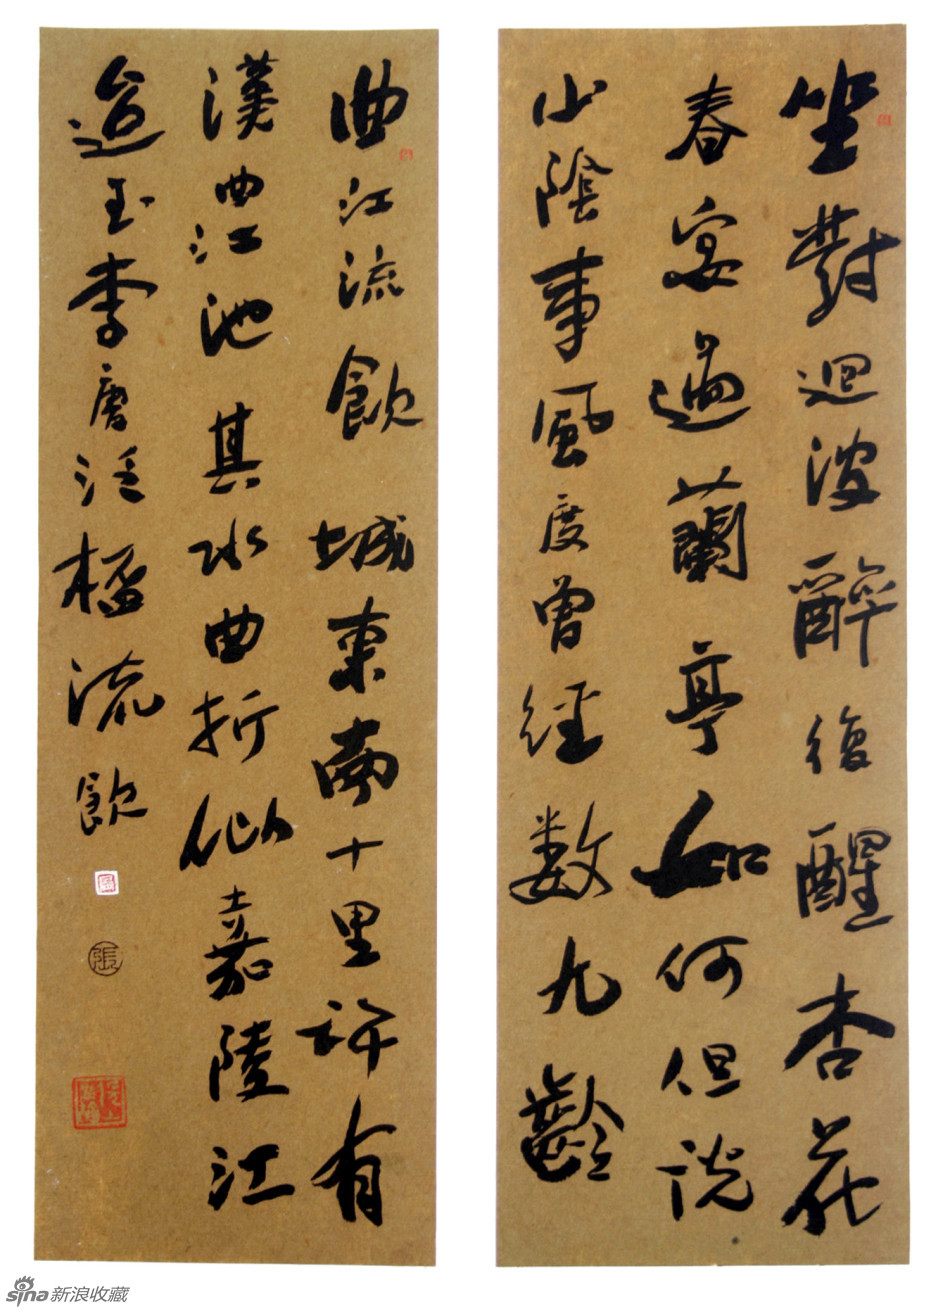 坐對迴波醉復醒杏花
春宴過蘭亭如何但說
山陰事風度曾經數九齡
曲江流飲城東南十里許有
漢曲江池其水曲折似嘉陵江
迨至李唐泛榼流飲
張
sina新浪收藏